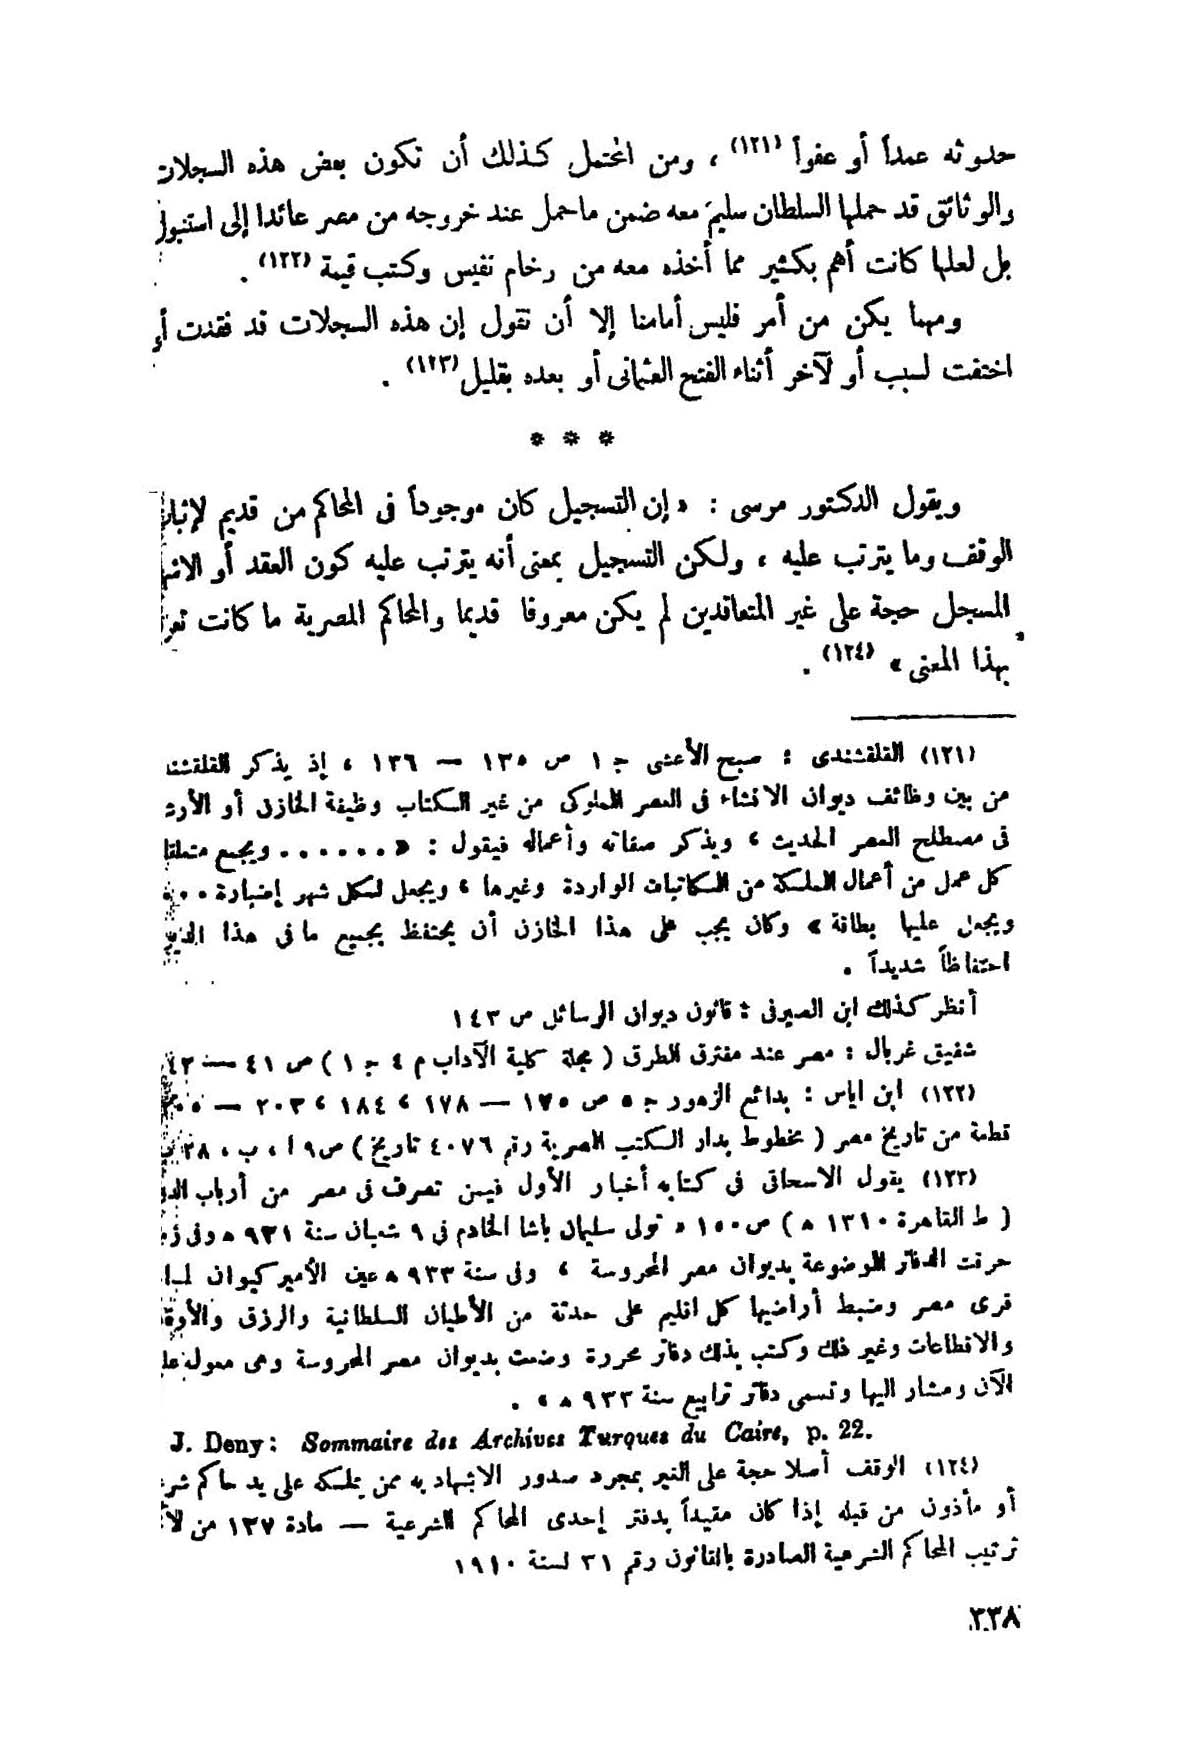 حدوثه عمداً أو عفواً (١٢١) ، ومن المحتمل كذلك أن تكون بعض هذه السجلات
والوثائق قد حملها السلطان سليم معه ضمن ماحمل عند خروجه من مصر عائدا إلى استنبول
بل لعلها كانت أهم بكثير مما أخذه معه من رخام نفيس وكتب قيمة (١٢٢) .
ومهما يكن من أمر فليس أمامنا إلا أن نقول إن هذه السجلات قد فقدت أو
اختفت لسبب أو لآخر أثناء الفتح العثمانى أو بعده بقليل (١٢٣) .
* * *
ويقول الدكتور مرسى : « إن التسجيل كان موجوداً فى المحاكم من قديم
الوقف وما يترتب عليه ، ولكن التسجيل بمعنى أنه يترتب عليه كون العقد أو
المسجل حجة على غير المتعاقدين لم يكن معروفا قديما والمحاكم المصرية ما كانت
بهذا المعنى » (١٢٤) .
(١٢١) القلقشندى : صبح الأعشى ج ١ ص ١٣٥ — ١٣٦ ، إذ يذكر
من بين وظائف ديوان الانشاء فى العصر المملوكى من غير الكتاب وظيفة الخازن أو
فى مصطلح العصر الحديث ، ويذكر صفاته وأعماله فيقول : « . . . . . . ويجمع
كل عمل من أعمال المملكة من المكاتبات الواردة وغيرها ، ويجعل لكل شهر إضبارة . . .
ويجعل عليها بطاقة » وكان يجب على هذا الخازن أن يحتفظ بجميع ما فى هذا
احتفاظاً شديداً .
أنظر كذلك ابن الصيرفى : قانون ديوان الرسائل ص ١٤٣
شفيق غربال : مصر عند مفترق الطرق ( مجلة كلية الآداب م ٤ ج ١ ) ص ٤١ — ٤٢
(١٢٢) ابن اياس : بدائع الزهور ج ٥ ص ١٧٥ — ١٧٨ ، ١٨٤ ، ٢٠٣ —
قطعة من تاريخ مصر ( مخطوط بدار الكتب المصرية رقم ٤٠٧٦ تاريخ ) ص ٩ ا ، ب ، ٢٨
(١٢٣) يقول الاسحاقى فى كتابه أخبار الأول فيمن تصرف فى مصر من أرباب
( ط القاهرة ١٣١٠ هـ ) ص ١٥٠ « تولى سليمان باشا الخادم فى ٩ شعبان سنة ٩٣١ هـ وفى
حرقت الدفاتر الموضوعة بديوان مصر المحروسة ، وفى سنة ٩٣٣ هـ عين الأمير كيوان
قرى مصر وضبط أراضيها كل اقليم على حدثة من الأطيان السلطانية والرزق
والاقطاعات وغير ذلك وكتب بذلك دفاتر محررة وضعت بديوان مصر المحروسة وهى
الآن ومشار اليها وتسمى دفاتر ترابيع سنة ٩٣٣ هـ » .
J. Deny: Sommaire des Archives Turques du Caire, p. 22.
(١٢٤) الوقف أصلا حجة على الغير بمجرد صدور الاشهاد به ممن يملكه على يد حاكم
أو مأذون من قبله إذا كان مقيداً بدفتر إحدى المحاكم الشرعية — مادة ١٣٧ من
ترتيب المحاكم الشرعية الصادرة بالقانون رقم ٣١ لسنة ١٩١٠
٢٣٨